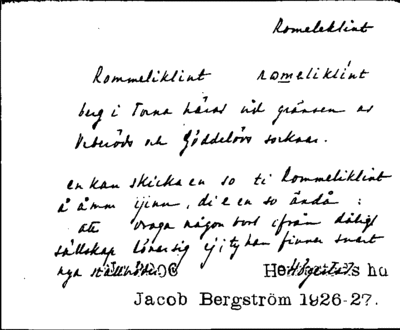 Romeleklint
Rommeliklint romeliklint
berg i Torna härad vid gränsen av
Veberöds och Göddelövs socknar.
en kan skicka en so ti Rommeliklint
å åmm ijinn, di e en so ändå :
att draga någon bort ifrån dåligt
sällskap lönar sig ej, ty han finner snart
nya
Jacob Bergström 1926-27.